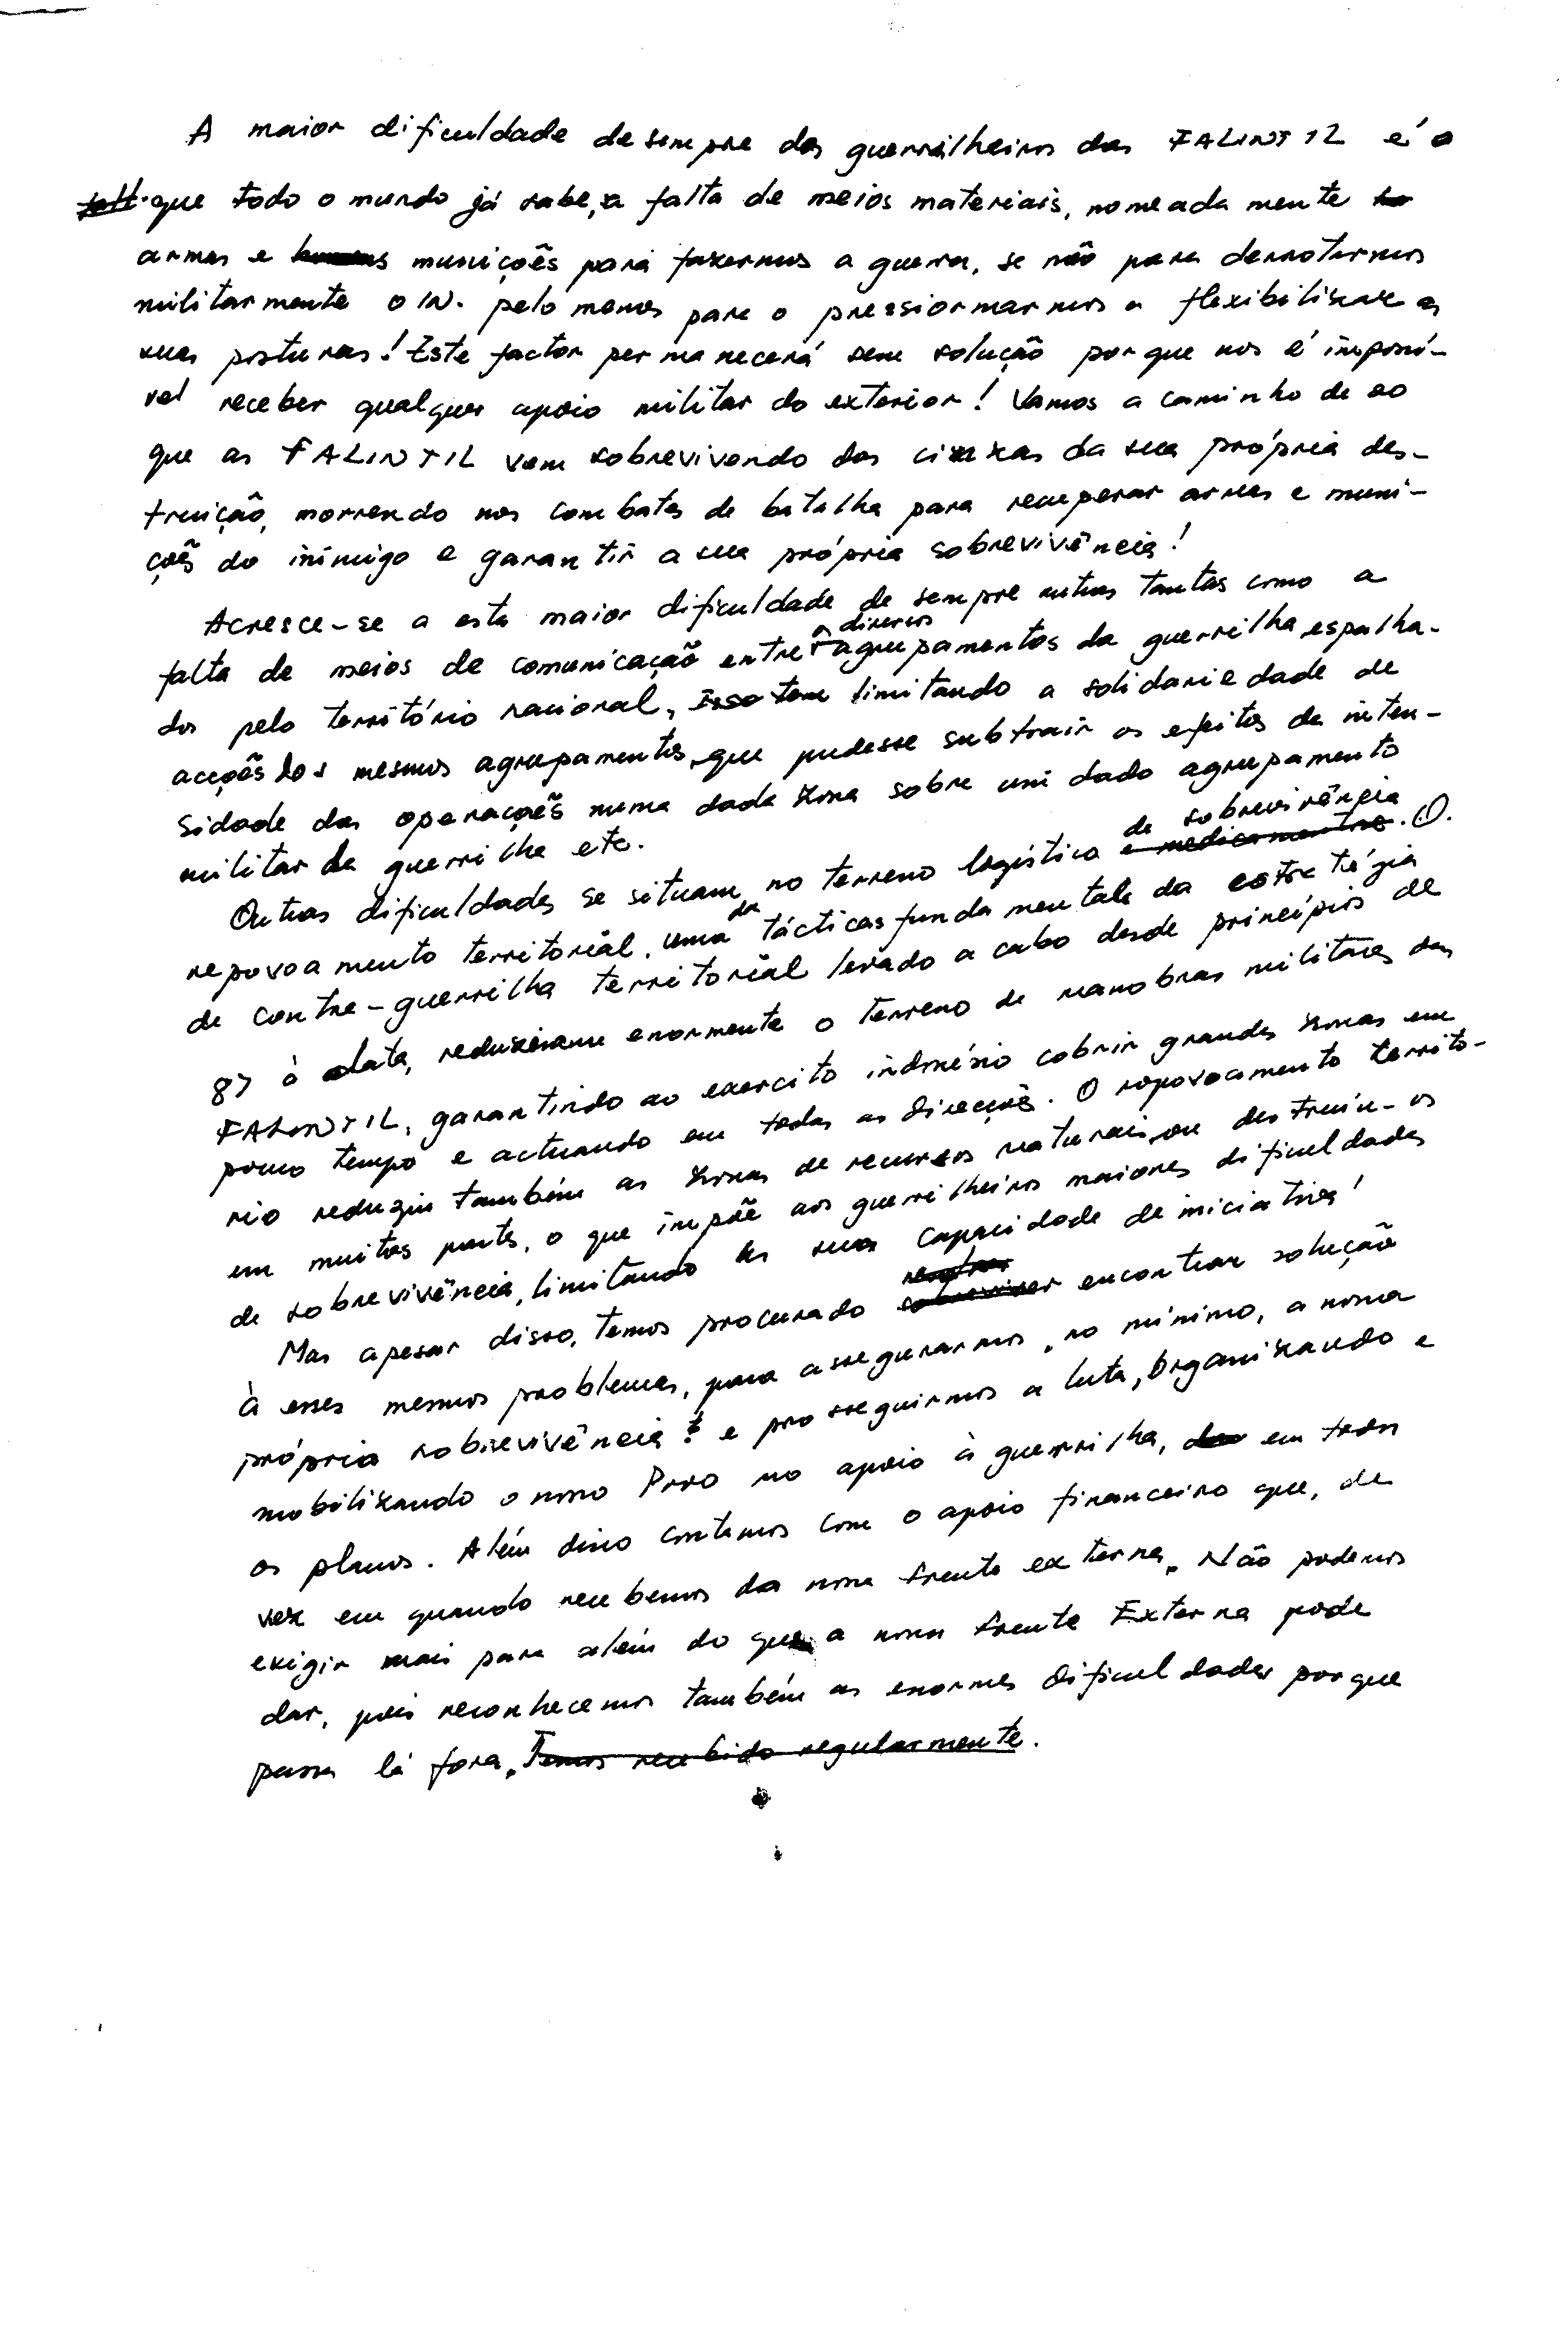 A maior dificuldade de sempre dos guerrilheiros das FALINTIL é o
que todo o mundo já sabe, a falta de meios materiais, nomeadamente
armas e munições para fazermos a guerra, se não para derrotarmos
militarmente o IN. pelo menos para o pressionarmos a flexibilizar as
suas posturas! Este factor permanecerá sem solução porque nos é impossí-
vel receber qualquer apoio militar do exterior! Vamos a caminho de 20
que as FALINTIL vem sobrevivendo das cinzas da sua própria des-
truição, morrendo nos combates de batalha para recuperar armas e muni-
ções do inimigo e garantir a sua própria sobrevivência!
Acresce-se a esta maior dificuldade de sempre outras tantas como a
falta de meios de comunicação entre os diversos agrupamentos da guerrilha espalha-
dos pelo território nacional, limitando a solidariedade de
acções dos mesmos agrupamentos, que pudesse subtrair os efeitos da inten-
sidade das operações numa dada zona sobre um dado agrupamento
militar da guerrilha etc.
Outras dificuldades se situam no terreno logística de sobrevivência. O.
repovoamento territorial, uma das tácticas fundamentais da estratégia
de contra-guerrilha territorial levado a cabo desde princípios de
87 à data, reduziram enormente o terreno de manobras militares das
FALINTIL, garantindo ao exercito indonésio cobrir grandes zonas em
pouco tempo e actuando em todas as direcções. O repovoamento territó-
rio reduziu também as zonas de recursos naturais, ou destruiu-os
em muitas partes, o que impõe aos guerrilheiros maiores dificuldades
de sobrevivência, limitando as suas capacidade de iniciativa!
Mas apesar disso, temos procurado encontrar solução
à esses mesmos problemas, para assegurarmos, no mínimo, a nossa
própria sobrevivência! e prosseguirmos a luta, organizando e
mobilizando o nosso Povo no apoio à guerrilha, em todos
os planos. Além disso contamos com o apoio financeiro que, de
vez em quando recebemos da nossa frente externa. Não podemos
exigir mais para além do que a nossa frente Externa pode
dar, pois reconhecemos também as enormes dificuldades porque
passa lá fora. Temos recebido regularmente.